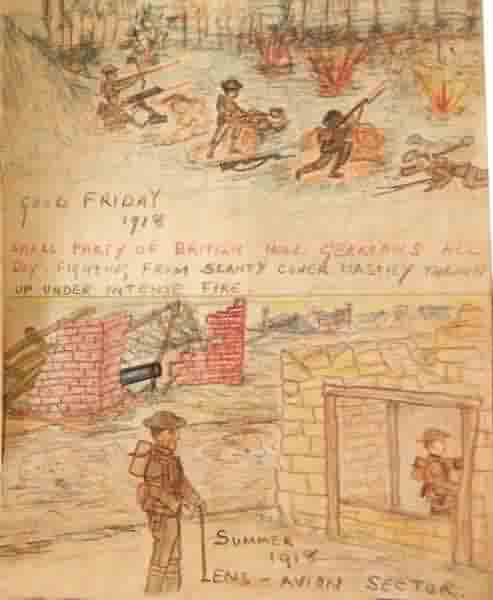 GOOD FRIDAY
1918
SMALL PARTY OF BRITISH HOLD GERMANS ALL
DAY. FIGHTING FROM SCANTY COVER HASTILY THROWN
UP UNDER INTENSE FIRE.
SUMMER
1918
LENS - AVION SECTOR.